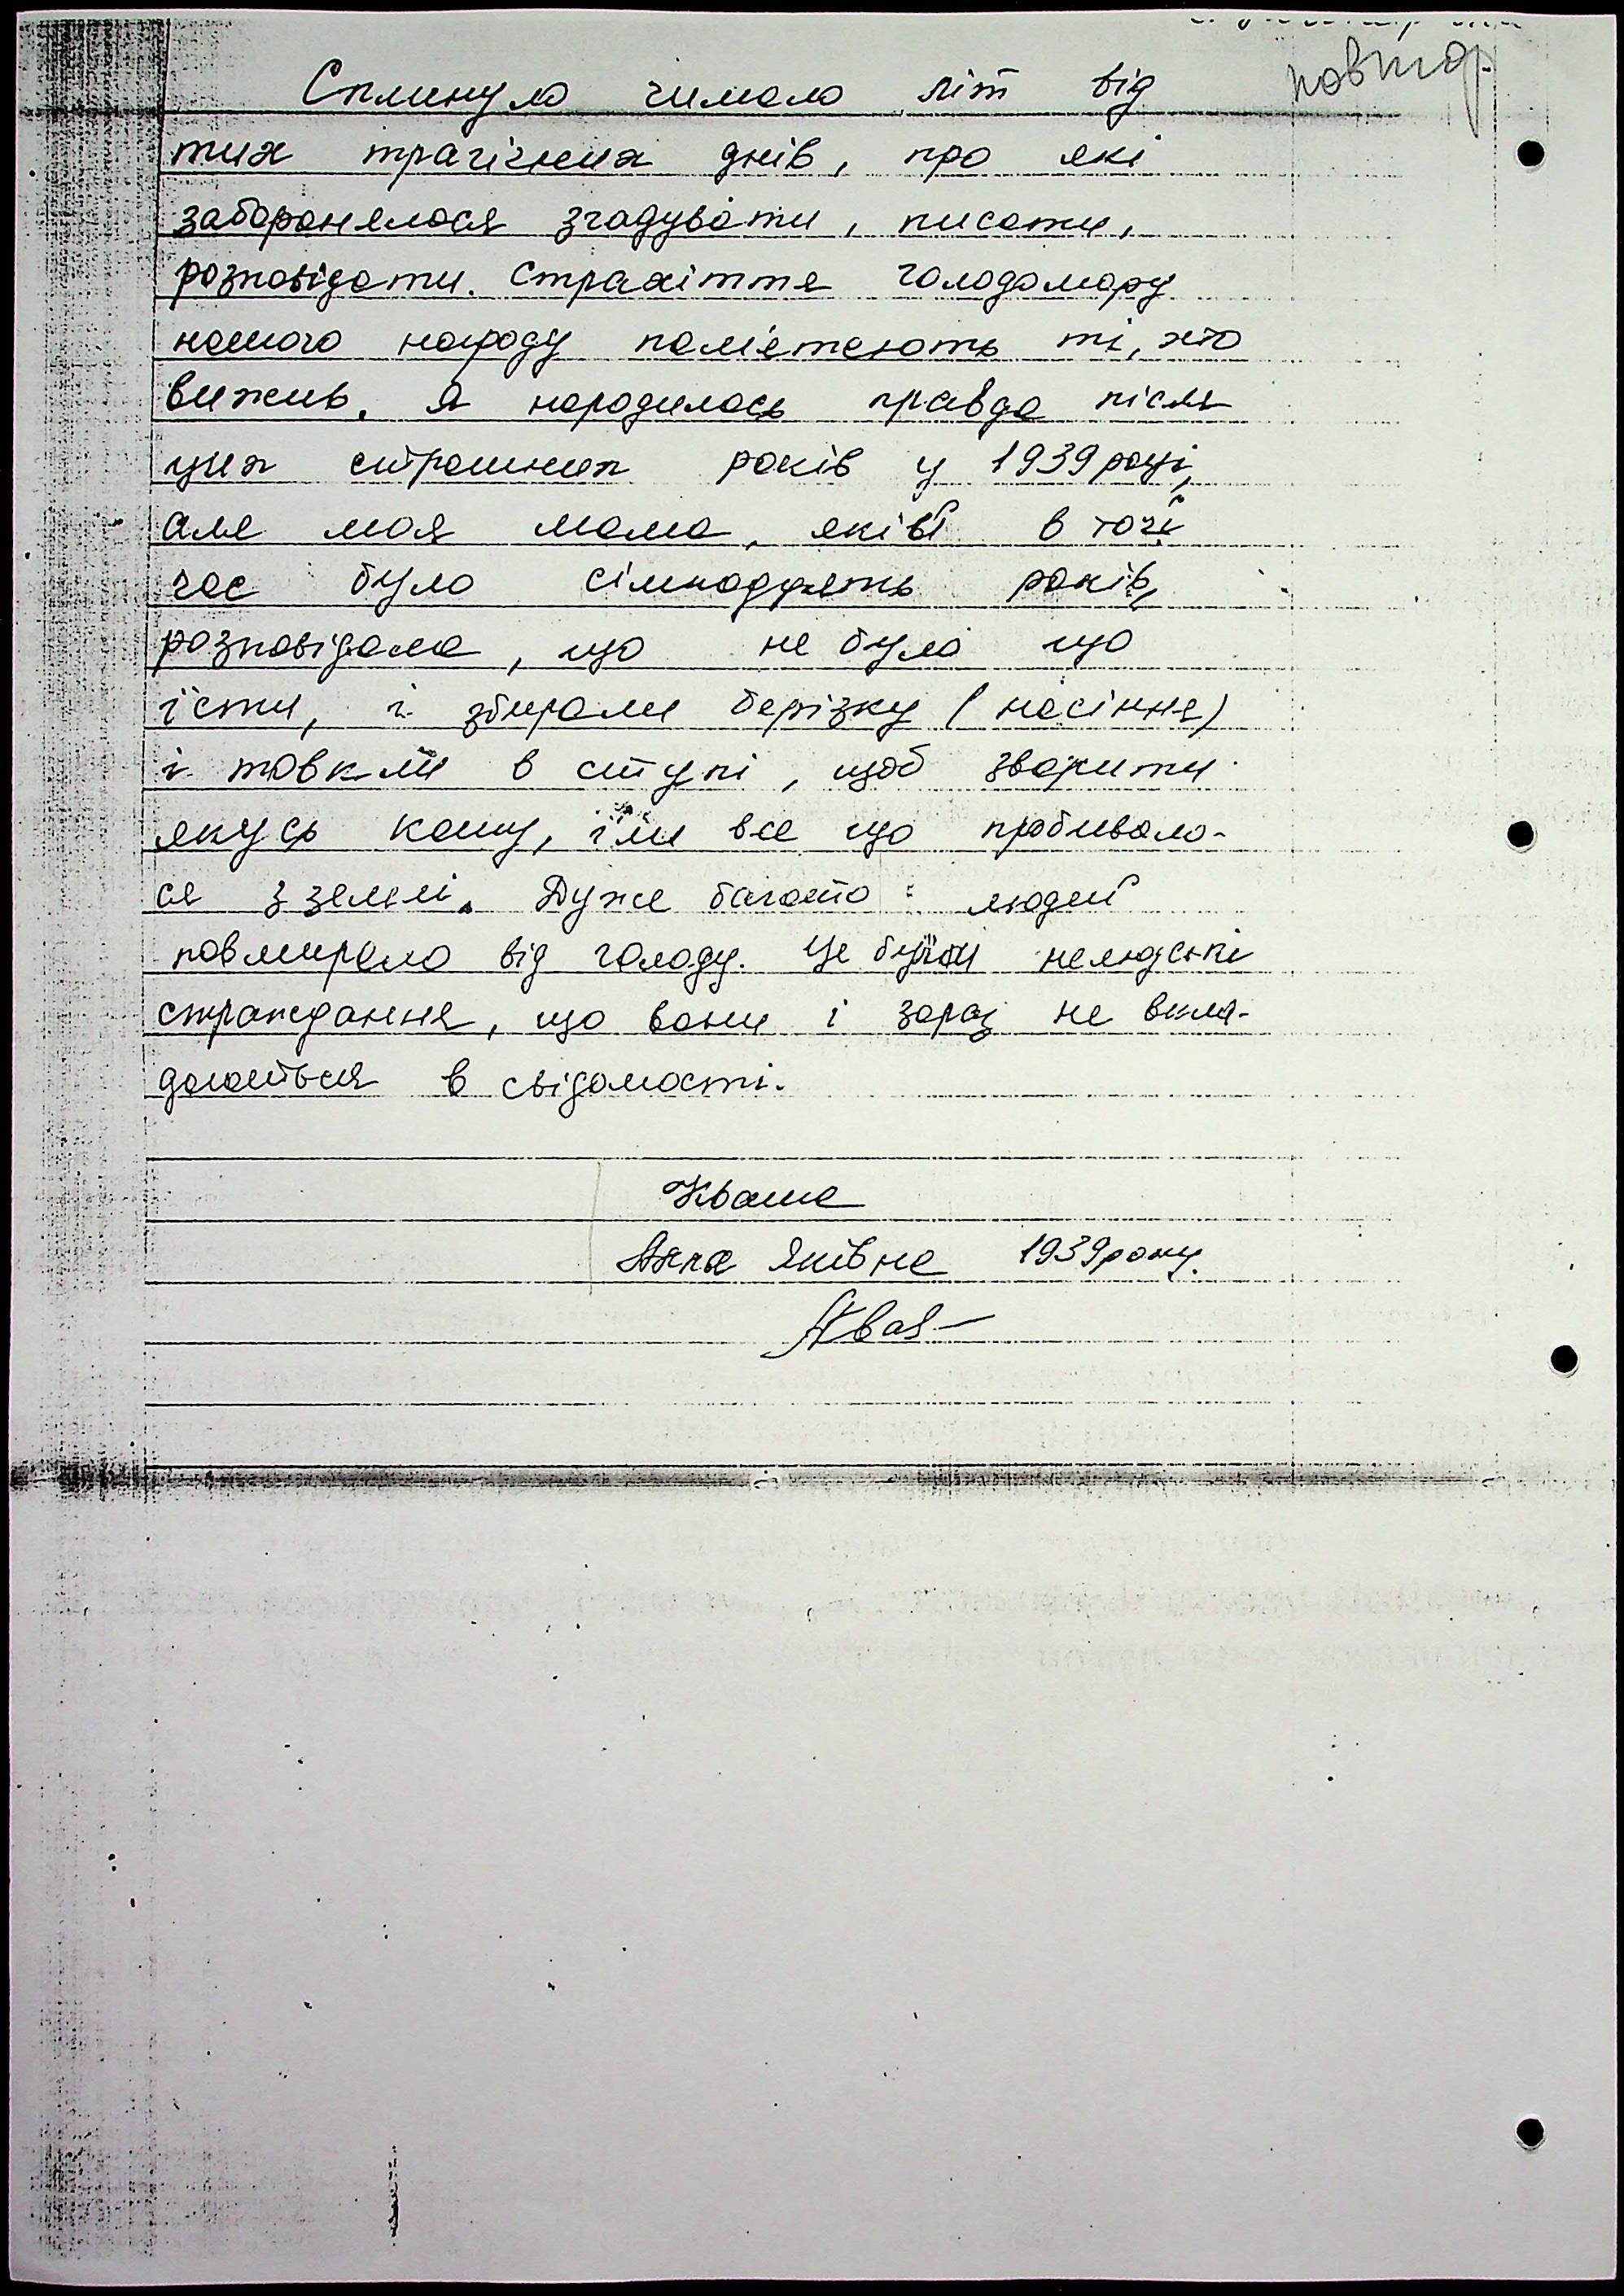 повтор.
Сплинуло чимало літ від
тих трагічних днів, про які
заборонялося згадувати, писати,
розповідати. Страхіття голодомору
нашого народу памʼятають ті, хто
вижив. Я народилась правда після
цих страшних років у 1939 році,
але моя мама, якій в той
час було сімнадцять років,
розповідала, що не було що
їсти, і збирали берізку (насіння)
і товкли в ступі, щоб зварити
якусь кашу, їли все що пробивало-
ся з землі. Дуже багато людей
повмирало від голоду. Це були нелюдські
страждання, що вони і зараз не вкла-
даються в свідомості.
Кваша
Яківна 1939 року.